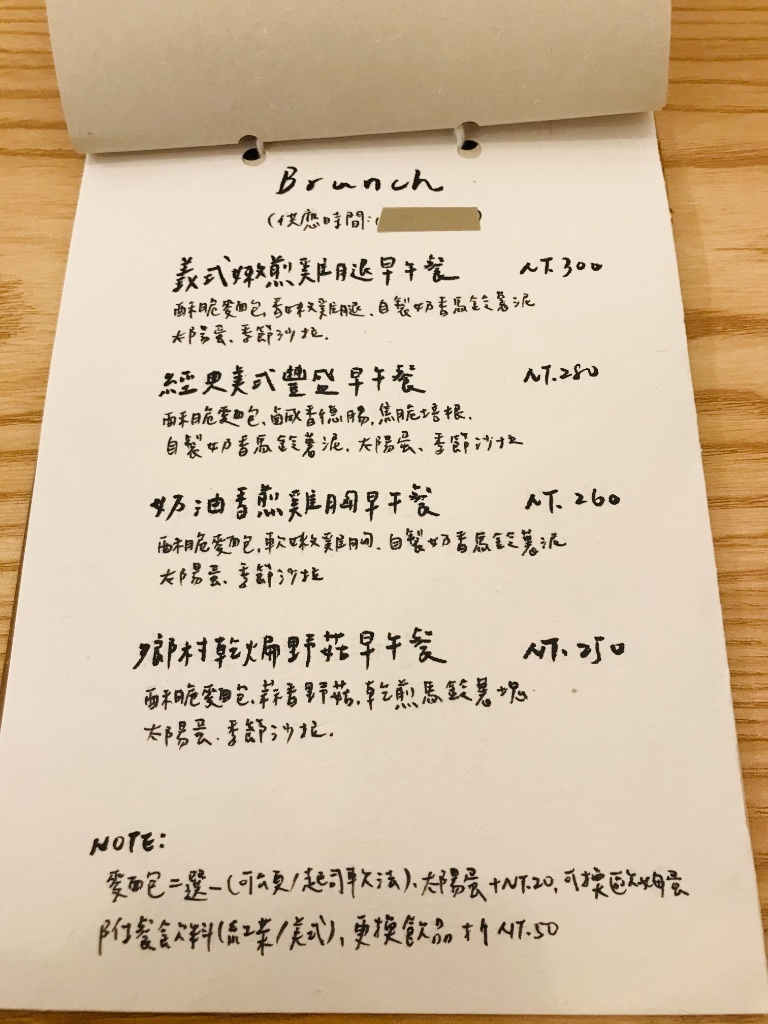 Brunch
(供應時間:
義式嫩煎雞腿早午餐 NT.300
酥脆麵包、香嫩雞腿、自製奶香馬鈴薯泥
太陽蛋、季節沙拉.
經典美式豐盛早午餐 NT.280
酥脆麵包、鹹香德腸、焦脆培根、
自製奶香馬鈴薯泥、太陽蛋、季節沙拉
奶油香煎雞胸早午餐 NT.260
酥脆麵包、軟嫩雞胸、自製奶香馬鈴薯泥
太陽蛋、季節沙拉
鄉村乾煸野菇早午餐 NT.250
酥脆麵包、蒜香野菇、乾煎馬鈴薯塊
太陽蛋、季節沙拉.
NOTE:
麵包二選一(可頌/起司軟法)、太陽蛋+NT.20,可換歐姆蛋
附餐飲料(紅茶/美式)、更換飲品折NT.50